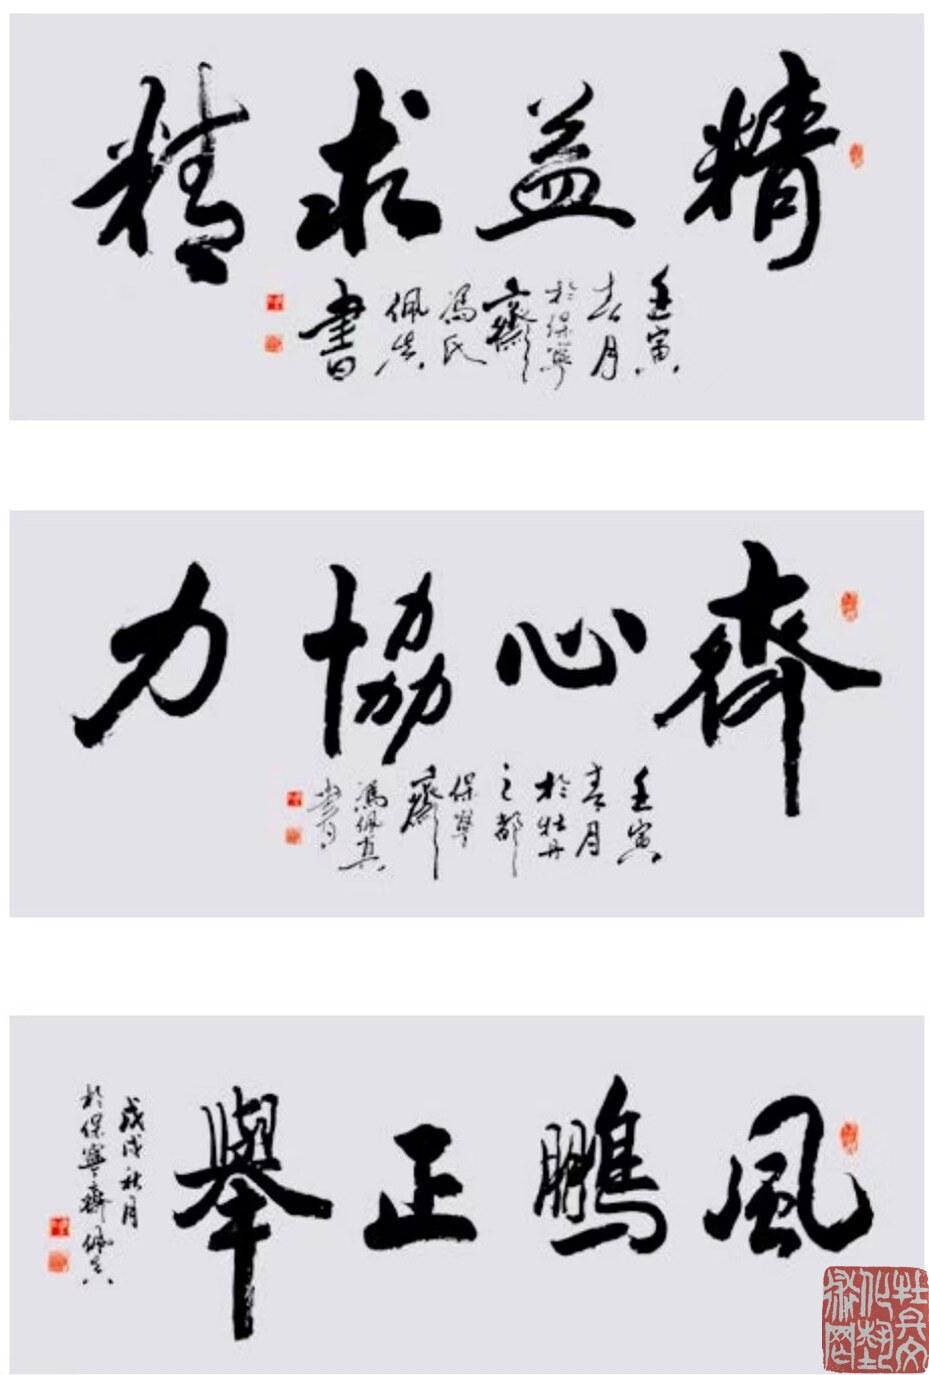 精益求精
壬寅
春月
於保寧
齋
馮氏
佩真
書
齊心協力
壬寅
春月
於牡丹
之都
保寧
齋
馮佩真
書
風鵬正舉
戊戌秋月
於保寧齋佩真
牡丹文
化艺
术网